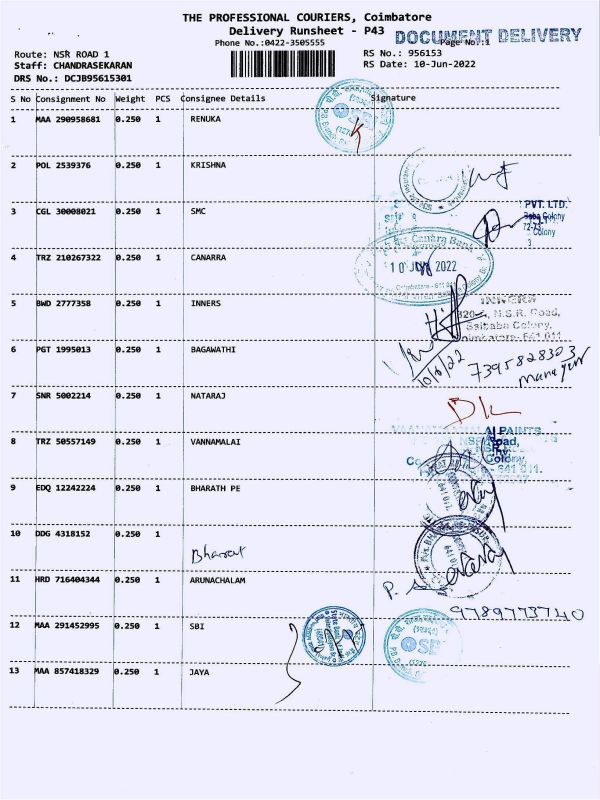 THE PROFESSIONAL COURIERS, Coimbatore
Delivery Runsheet - P43
DOCUMENT DELIVERY
Phone No.:0422-3505555
Page No.:1
Route: NSR ROAD 1
RS No.: 956153
Staff: CHANDRASEKARAN
RS Date: 10-Jun-2022
DRS No.: DCJB95615301
S No Consignment No Weight PCS Consignee Details Signature
1 MAA 290958681 0.250 1 RENUKA
2 POL 2539376 0.250 1 KRISHNA
3 CGL 30008021 0.250 1 SMC
PVT. LTD.
Baba Colony
72-73,
Colony
3
4 TRZ 210267322 0.250 1 CANARRA
Canara Bank
10 JUN 2022
Coimbatore - 641
5 BWD 2777358 0.250 1 INNERS
INNERS
320-A, N.S.R. Road,
Saibaba Colony,
Coimbatore-641 011
6 PGT 1995013 0.250 1 BAGAWATHI
10/6/22
7395828303
Manager
7 SNR 5002214 0.250 1 NATARAJ
8 TRZ 50557149 0.250 1 VANNAMALAI
AI PAINTS
NSR Road,
Colony,
- 641 011.
9 EDQ 12242224 0.250 1 BHARATH PE
10 DDG 4318152 0.250 1
Bharat
11 HRD 716404344 0.250 1 ARUNACHALAM
9789773740
12 MAA 291452995 0.250 1 SBI
SBI
13 MAA 857418329 0.250 1 JAYA